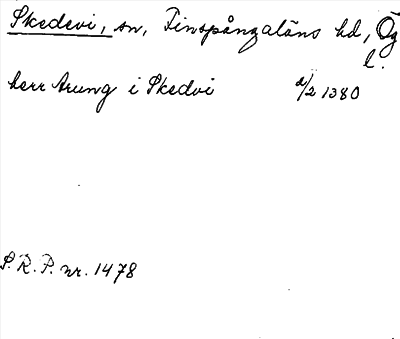 Skedevi, sn, Finspångaläns hd, Ög
l.
herr Arung i Skedvi 2/2 1380
S. R. P. nr. 1478